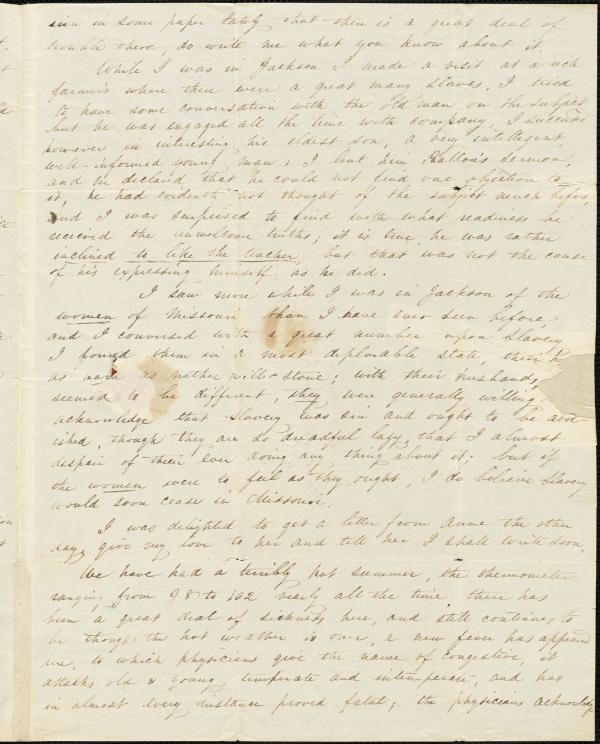 seen in some paper lately that there is a great deal of
trouble there, do write me what you know about it.
While I was in Jackson I made a visit at a rich
farmer's where there were a great many slaves. I tried
to have some conversation with the old man on the subject
but he was engaged all the time with company, I succeeded
however in interesting his eldest son, a very intelligent,
well-informed young man; I lent him Ballou's sermon,
and he declared that he could not find one objection to
it, he had evidently not thought of the subject much before,
and I was surprised to find with what readiness he
received the unwelcome truths; it is true, he was rather
inclined to like the teacher, but that was not the cause
of his expressing himself as he did.
I saw more while I was in Jackson of the
women of Missouri than I have ever seen before,
and I conversed with a great number upon Slavery
I found them in a most deplorable state, their
as hard as nether mill-stone; with their husbands,
seemed to be different, they were generally willing
acknowledge that Slavery was sin and ought to be abol-
ished, though they are so dreadful lazy that I almost
despair of their ever doing any thing about it; but if
the women were to feel as they ought, I do believe Slavery
would soon cease in Missouri.
I was delighted to get a letter from Anne the other
day, give my love to her and tell her I shall write soon.
We have had a terribly hot summer, the thermometer
ranging from 98 to 102 nearly all the time, there has
been a great deal of sickness here, and still continues to
be, though the hot weather is over, a new fever has appeared
here, to which physicians give the name of congestive, it
attacks old & young, temperate and intemperate, and has
in almost every instance proved fatal; the physicians acknowledge